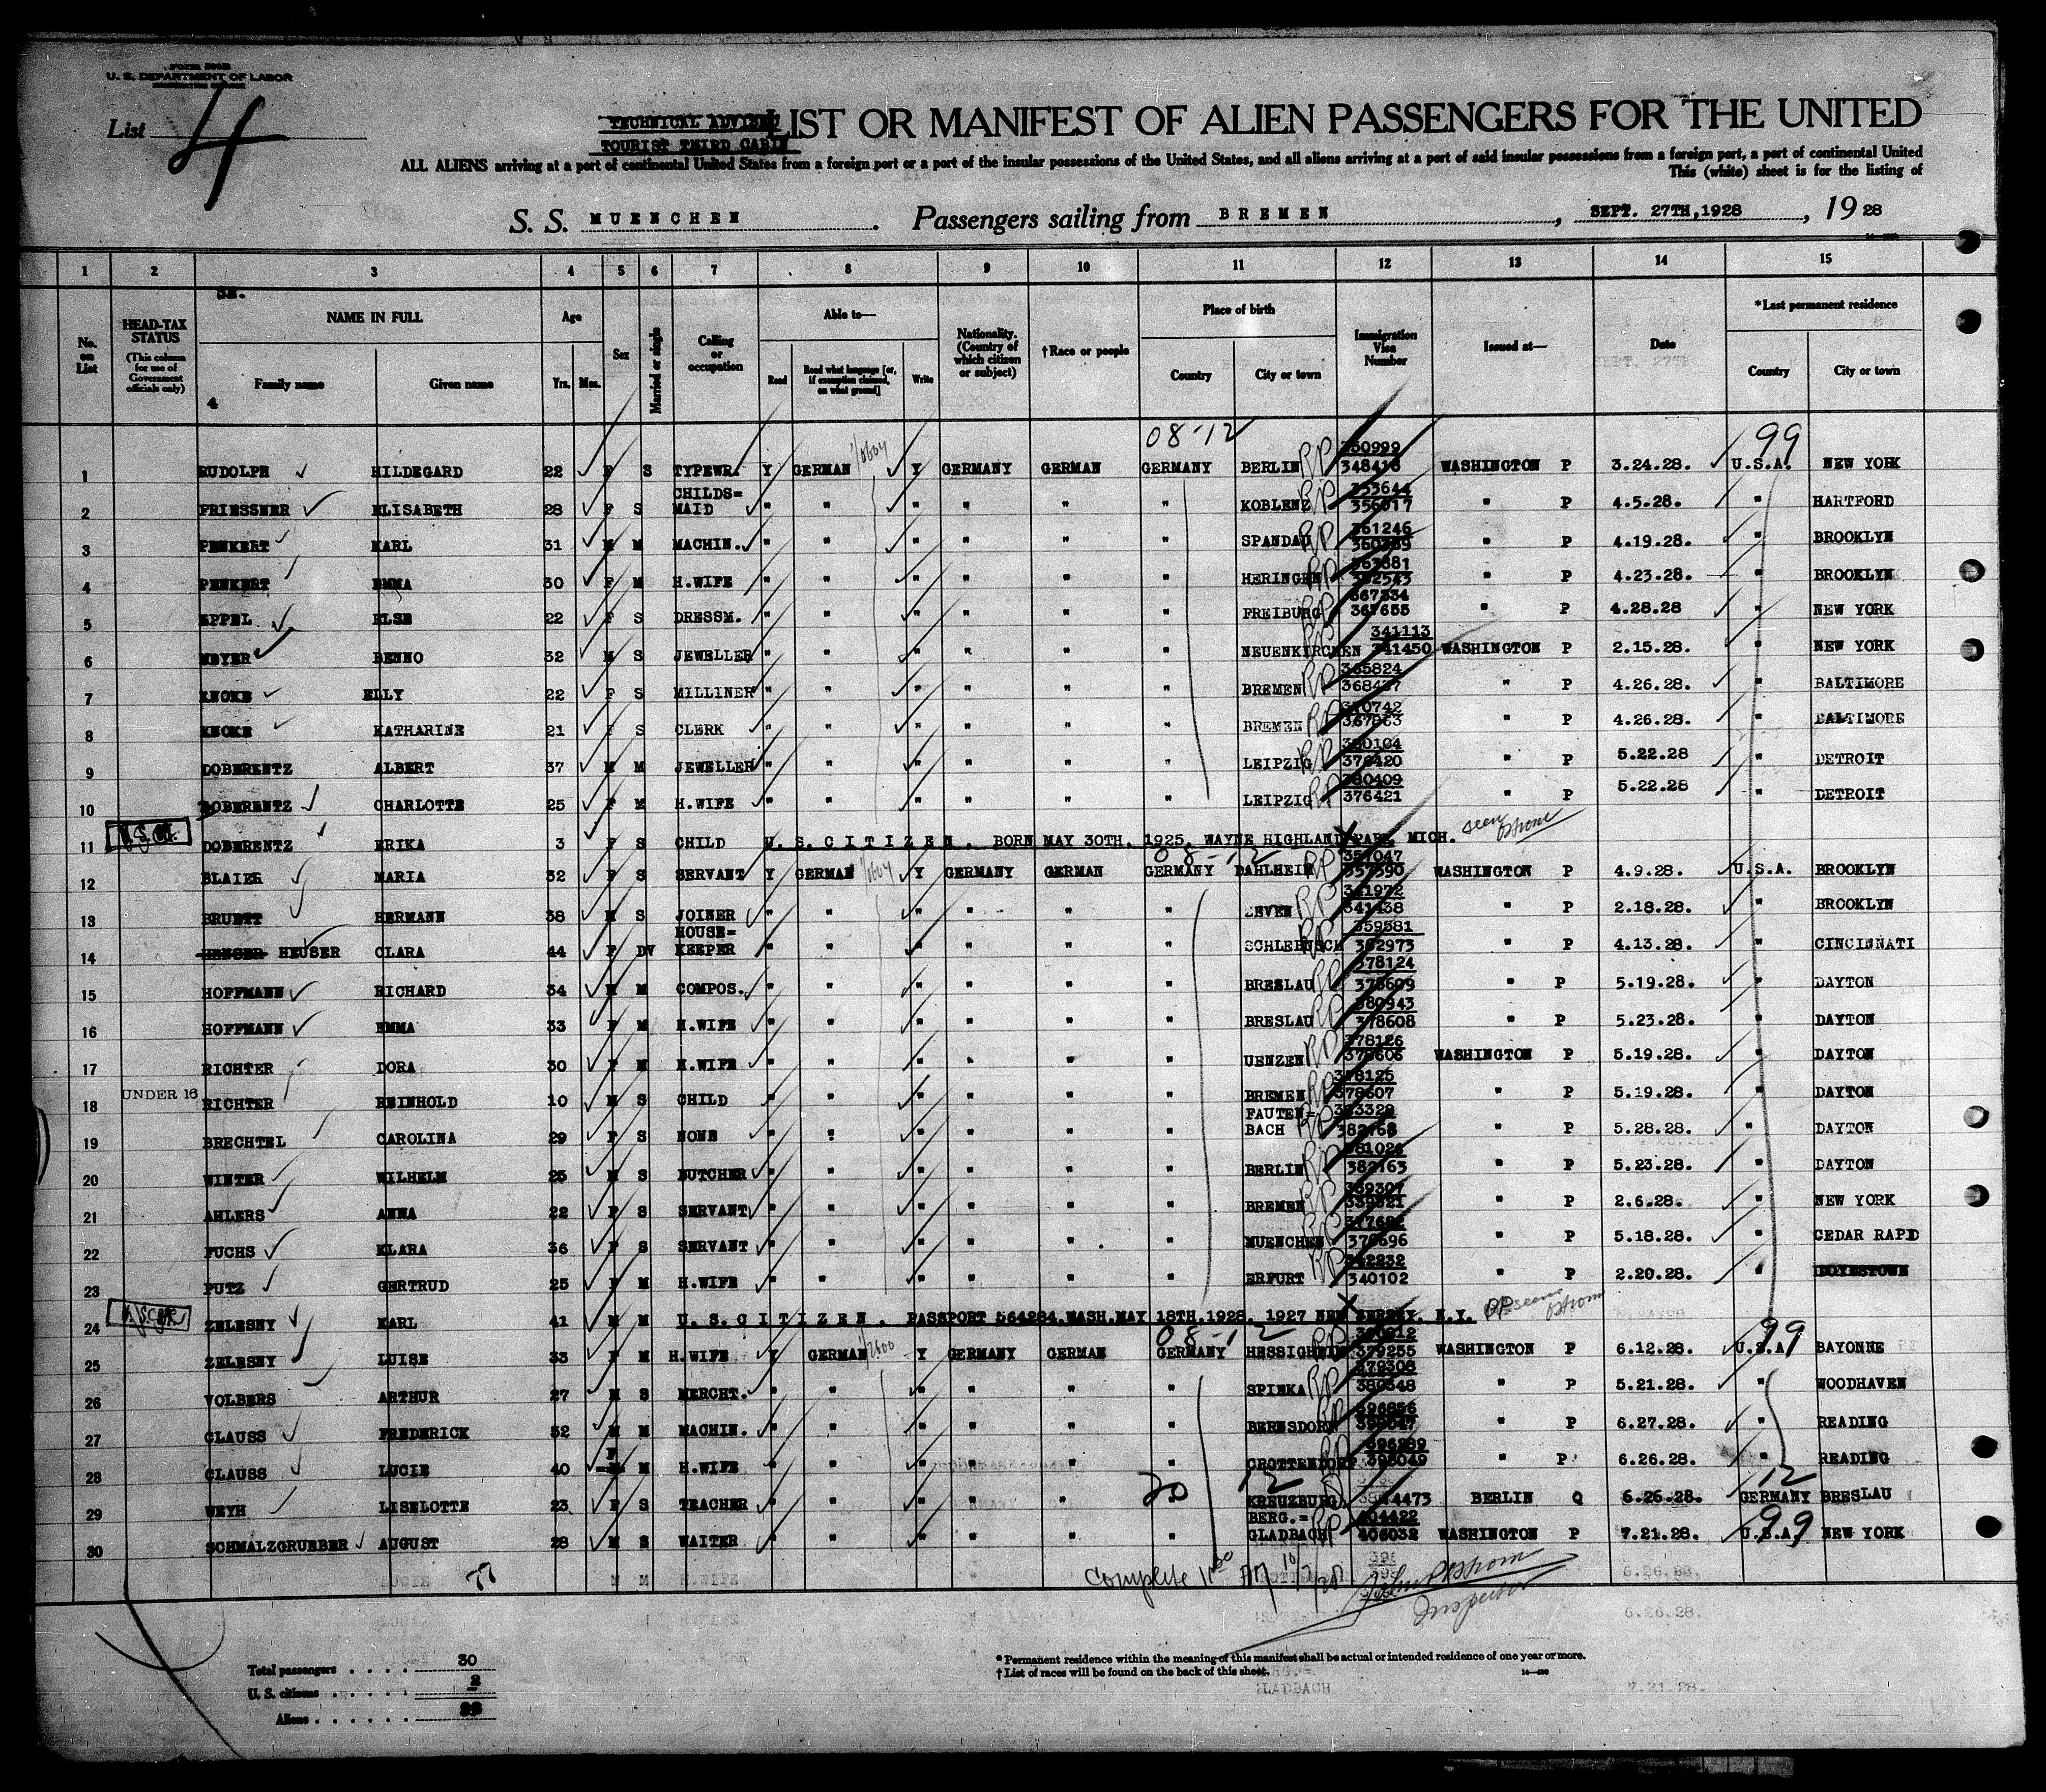 FORM 500B
U. S. DEPARTMENT OF LABOR
List 4
TECHNICAL ADVISER
TOURIST THIRD CABIN
LIST OR MANIFEST OF ALIEN PASSENGERS FOR THE UNITED
ALL ALIENS arriving at a port of continental United States from a foreign port or a port of the insular possessions of the United States, and all aliens arriving at a port of said insular possessions from a foreign port, a port of continental United
This (white) sheet is for the listing of
S. S. MUENCHEN. Passengers sailing from BREMEN, SEPT. 27TH, 1928, 1928
1 2 3 4 5 6 7 8 9 10 11 12 13 14 15
No. on List
HEAD-TAX STATUS (This column for use of Government officials only)
NAME IN FULL
Family name
Given name
4
Age
Yrs.
Mos.
Sex
Married or single
Calling or occupation
Able to—
Read
Read what language [or, if exemption claimed, on what ground]
Write
Nationality. (Country of which citizen or subject)
†Race or people
Place of birth
Country
City or town
Immigration Visa Number
Issued at—
Date
*Last permanent residence
Country
City or town
08-12 99
1 RUDOLPH HILDEGARD 22 F S TYPEWR. Y GERMAN Y GERMANY GERMAN GERMANY BERLIN RP 348416 WASHINGTON P 3.24.28. U.S.A. NEW YORK
2 FRIESSNER ELISABETH 28 F S CHILDS=MAID " " " " " " KOBLENZ RP 353644 356017 " P 4.5.28. " HARTFORD
3 PENKERT KARL 31 M M MACHIN. " " " " " " SPANDAU RP 361246 " P 4.19.28. " BROOKLYN
4 PENKERT EMMA 30 F M H.WIFE " " " " " " HERINGEN RP " P 4.23.28. " BROOKLYN
5 EPPEL ELSE 22 F S DRESSM. " " " " " " FREIBURG RP 367334 367655 " P 4.28.28 " NEW YORK
6 MEYER BENNO 32 M S JEWELLER " " " " " " NEUENKIRCHEN RP 341113 341450 WASHINGTON P 2.15.28. " NEW YORK
7 KNOKE ELLY 22 F S MILLINER " " " " " " BREMEN RP 365824 " P 4.26.28. " BALTIMORE
8 KNOKE KATHARINE 21 F S CLERK " " " " " " BREMEN RP " P 4.26.28. " BALTIMORE
9 DOBERENTZ ALBERT 37 M M JEWELLER " " " " " " LEIPZIG RP 380104 376420 " P 5.22.28 " DETROIT
10 DOBERENTZ CHARLOTTE 25 F M H.WIFE " " " " " " LEIPZIG RP 380409 376421 " P 5.22.28 " DETROIT
U.S.C.
11 DOBERENTZ ERIKA 3 F S CHILD U.S.CITIZEN. BORN MAY 30TH. 1925. WAYNE HIGHLAND PARK MICH. seen
08-12
12 BLAIER MARIA 32 F S SERVANT Y GERMAN Y GERMANY GERMAN GERMANY DAHLHEIM RP 357047 357590 WASHINGTON P 4.9.28. U.S.A. BROOKLYN
13 BRUNTT HERMANN 38 M S JOINER " " " " " " ZEVEN RP 341972 341438 " P 2.18.28. " BROOKLYN
14 HEUSER CLARA 44 F DV HOUSE=KEEPER " " " " " " SCHLEBUSCH RP 359581 362973 " P 4.13.28. " CINCINNATI
15 HOFFMANN RICHARD 34 M M COMPOS. " " " " " " BRESLAU RP 378124 378609 " P 5.19.28. " DAYTON
16 HOFFMANN EMMA 33 F M H.WIFE " " " " " " BRESLAU RP 380943 378608 " P 5.23.28. " DAYTON
17 RICHTER DORA 30 F M H.WIFE " " " " " " UENZEN RP 378126 378606 WASHINGTON P 5.19.28. " DAYTON
18 UNDER 16 RICHTER REINHOLD 10 M S CHILD " " " " " " BREMEN RP 378125 378607 " P 5.19.28. " DAYTON
19 BRECHTEL CAROLINA 29 F S NONE " " " " " " FAUTEN=BACH RP " P 5.28.28. " DAYTON
20 WINTER WILHELM 25 M S BUTCHER " " " " " " BERLIN RP " P 5.23.28. " DAYTON
21 AHLERS ANNA 22 F S SERVANT " " " " " " BREMEN RP 339307 339321 " P 2.6.28. " NEW YORK
22 FUCHS KLARA 36 F S SERVANT " " " " " " MUENCHEN RP " P 5.18.28. " CEDAR RAPID
23 PUTZ GERTRUD 25 F M H.WIFE " " " " " " ERFURT RP 340102 " P 2.20.28. " DOYESTOWN
24 ZELESNY KARL 41 M M U.S.CITIZEN. PASSPORT 564284.WASH.MAY 18TH.1928. 1927 NEW JERSEY. N.Y. PP. seen
08-12 99
25 ZELESNY LUISE 33 F M H.WIFE Y GERMAN Y GERMANY GERMAN GERMANY HESSIGHEIM RP 379255 WASHINGTON P 6.12.28. U.S.A BAYONNE
26 VOLBERS ARTHUR 27 M S MERCHT. " " " " " " SPINKA RP 379308 380348 " P 5.21.28. " WOODHAVEN
27 CLAUSS FREDERICK 52 M M MACHIN. " " " " " " BERNSDORF 396856 " P 6.27.28. " READING
28 CLAUSS LUCIE 40 F M H.WIFE " " " " " " CROTTENDORF RP 398049 " P 6.26.28. " READING
20 12 12
29 WEYH LISELOTTE 23 F S TEACHER " " " " " " KREUZBURG BERLIN Q 6.26.28. GERMANY BRESLAU
99
30 SCHMALZGRUEBER AUGUST 28 M S WAITER " " " " " " BERG.=GLADBACH RP 404422 406032 WASHINGTON P 7.21.28. U.S.A NEW YORK
77
Complete 11 30 AM
Inspector
Total passengers . . . . 30
U. S. citizens . . . . . 2
Aliens . . . . . . 28
*Permanent residence within the meaning of this manifest shall be actual or intended residence of one year or more.
†List of races will be found on the back of this sheet.